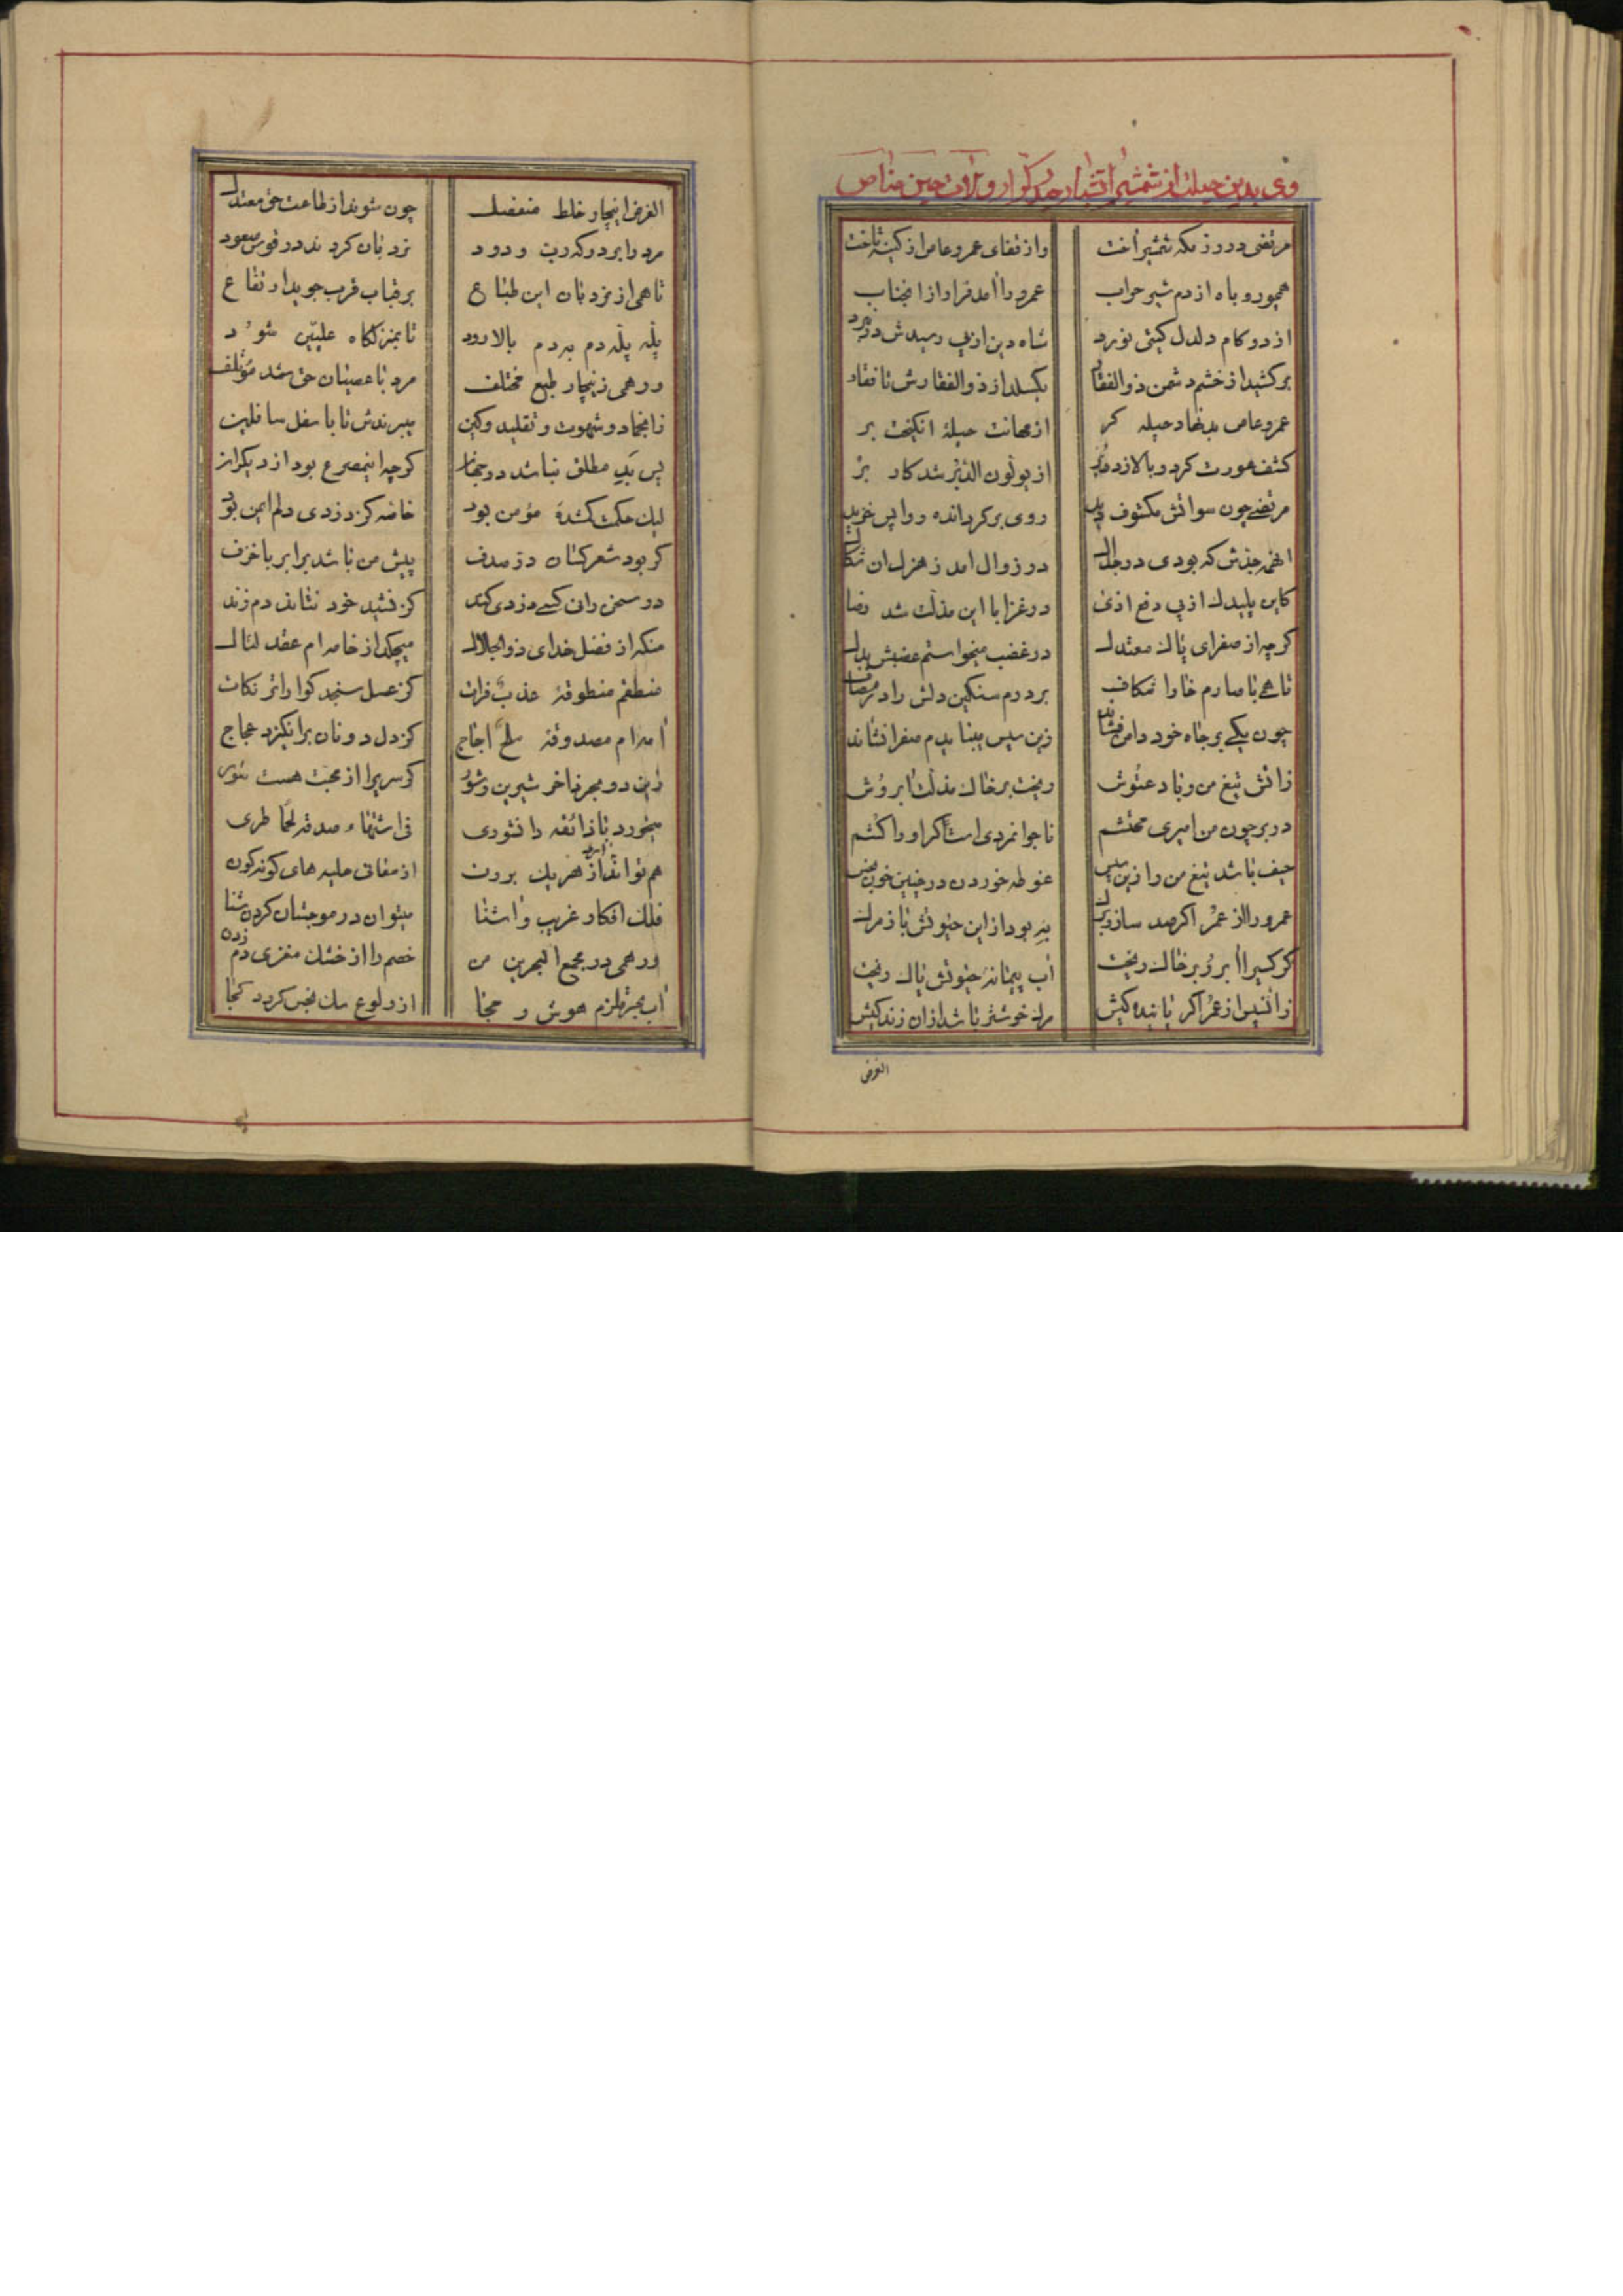 وی بدین حیلت از شمشیر آتشبار حیدر کرار و لات حین مناص
مرتضی در روز مکه شمشیر آخت
واز قفای عمرو عاص از کینه تاخت
همچو روباه از دم شیر حراب
عمرو را آمد فرار از آنجناب
از دو کام دلدل کیتی نورد
شاه دین از پی رسیدش در نبرد
برکشید از خشم دشمن ذوالفقار
بکسلد از ذوالفقارش تا فقار
عمرو عاص بدنهاد حیله کر
از مهانت حیلهٔ انکیخت بر
کشف عورت کرد و بالا زد دبر
از یولون الدبر شد کار بر
مرتضی چون سواتش مکشوف دید
روی برکردانده رو واپس خزید
انهمه جدش که بودی در جدال
در زوال امد ز هزل ان نکال
کاین پلیدک از پی دفع اذی
در غزا با این مذلت شد رضا
کرچه از صفرای پاک معتدل
در غضب میخواستم عضبش بدل
تا همی با صارم خارا شکاف
بردرم سنکین دلش را در مصاف
چون یکی بر جاه خود دامن فشاند
زین سپس میبایدم صفرا نشاند
زاتش تیغ من و باد عتوش
ریخت بر خاک مذلت ابروش
در بر چون من امیری محتشم
ناجوانمردی است اکر او را کشم
حیف باشد تیغ من را زین سپس
غوطه خوردن در چنین خون نجس
عمرو را از عمر اکر صد ساز و برک
به بود از این حیوتش باز مرک
کر کسیرا ابرو بر خاک ریخت
اب پیمانهٔ حیوتش پاک ریخت
زانسپس از عمر اکر پاینده کیش
مرک خوشتر باشد از ان زندکیش
الغرض
الغرض اینچار خلط منفصل
چون شوند از طاعت حق معتدل
مرد را بر درکه رب ودود
نردبان کردند در قوس صعود
تا همی از نردبان این طباع
بر قباب قرب جوید ارتفاع
پله پله دم بدم بالا رود
تا بمنزلکاه علیین شود
ور همی زینچار طبع مختلف
مرد با عصیان حق شد مؤتلف
زانجماد و شهوت و تقلید و کین
میبرندش تا باسفل سافلین
پس بد مطلق نباشد در جهان
کرچه اینمصرع بود از دیکران
لیک حکمت کمشدهٔ مؤمن بود
خاصه کز دزدی دلم ایمن بود
کر بود شعر کسان در صدف
پیش من باشد برابر با خزف
در سخن ران کسی دزدی کند
کز نشید خود نتاند دم زند
منکه از فضل خدای ذوالجلال
میچکد از خامه ام عقد لئال
منطقم منطوقهٔ عذب فرات
کز عسل سنجد کوارا تر نکات
امرام مصدوقه ملح اجاج
کز دل دونان برانکیزد عجاج
زین دو بحر فاخر شیرین و شور
کر سریرا از محبت هست شور
میخورد با ذائقه دانشوری
فی اشتهاء صدقه لحما طری
هم تواند از هر یک ارد برون
از معانی حلیه های کونه کون
فلک افکار غریب و اشنا
میتوان در موجشان کردن شنا
ور همی در مجمع البحرین من
خصم را از خشک مغزی دم زدن
اب بحر قلزم هوش و حجا
از ولوغ سک نجس کردد کجا